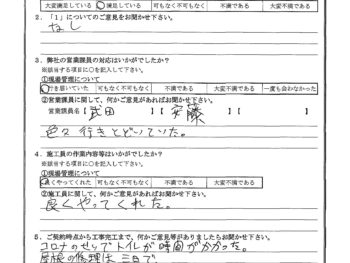 大変満足している 満足している 可も無く不可もなく 不満である 大変不満である
2．「1」についてのご意見をお聞かせ下さい。
なし
3．弊社の営業課員の対応はいかがでしたか？
※該当する項目に○を記入して下さい。
①現場管理について
行き届いていた 可も無く不可もなく 不満である 大変不満である 一度も会わなかった
②営業課員に関して、何かご意見があればお聞かせ下さい。
営業課員名【 武田 】【 安藤 】【
色々 行きとどいていた。
4．施工員の作業内容等はいかがでしたか？
※該当する項目に○を記入して下さい。
①現場管理について
良くやってくれた 可も無く不可もなく 不満である 大変不満である
②施工員に関して、何かご意見があればお聞かせ下さい。
良くやってくれた。
5．ご契約時点から工事完了まで、何かご意見等がありましたらお聞かせ下さい。
コロナのせいでトイレが時間がかかった。
屋根の修理は三日で